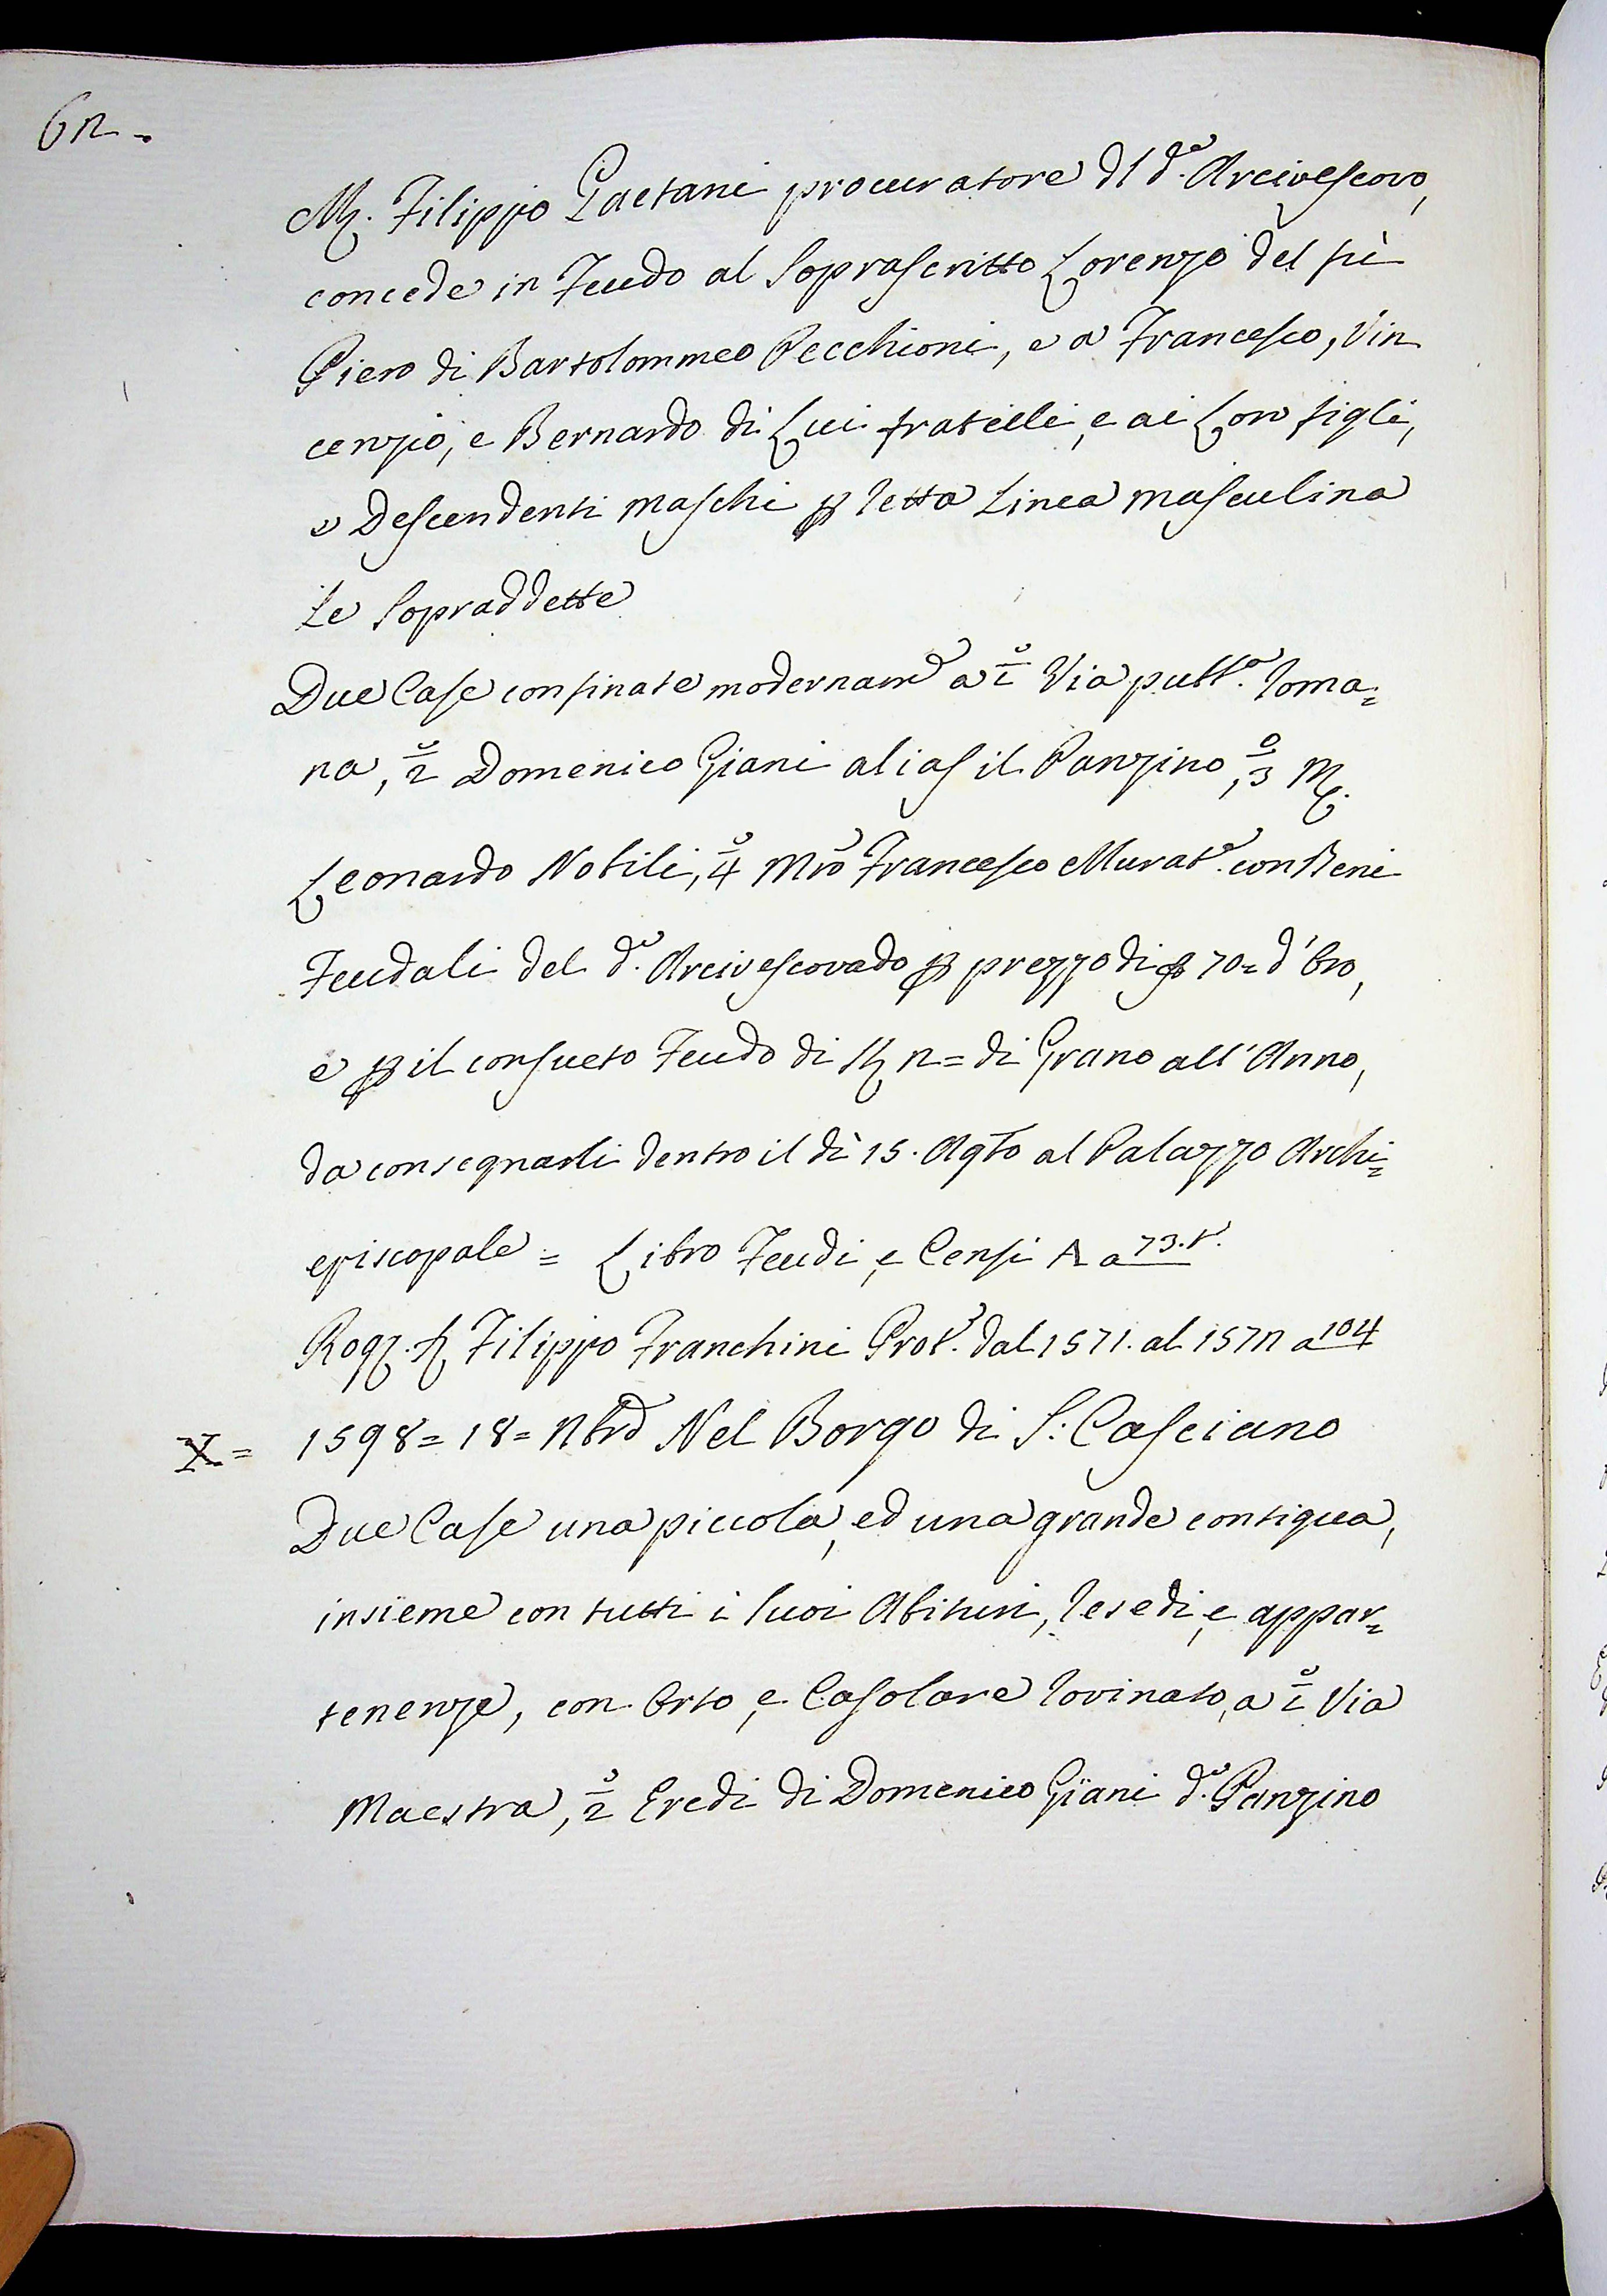 62.
M. Filippo Gaetani procuratore dl d.º Arcivescovo,
concede in Feudo al Soprascritto Lorenzo del fù
Piero di Bartolommeo Pecchioni, e a Francesco, Vin
cenzio, e Bernardo di Lui fratelli, e ai Loro figli,
e Descendenti maschi p retta Linea masculina
Le Sopraddette
Due Case confinate modernamᵉ a 1º Via pubb.ª Roma=
na, 2º Domenico Giani alias il Panzino, 3º M.
Leonardo Nobili, 4º Mrõ Francesco Murat.º con Beni
Feudali del d.º Arcivescovado p prezzo di 70= d'Oro,
e p il consueto Feudo di 2= di Grano all'Anno,
da consegnarli dentro il dì 15. Agto al Palazzo Archi=
episcopale = Libro Feudi, e Censi A a 73.t.
Rog. Filippo Franchini Prot.º dal 1571. al 1572 a 104
X = 1598= 18= Nbrẽ Nel Borgo di S: Casciano
Due Case una piccola, ed una grande contigua,
insieme con tutti i suoi Abituri, resedi, e appar=
tenenze, con Orto, e Casolare rovinato, a 1º Via
Maestra, 2º Eredi di Domenico Giani d.º Panzino